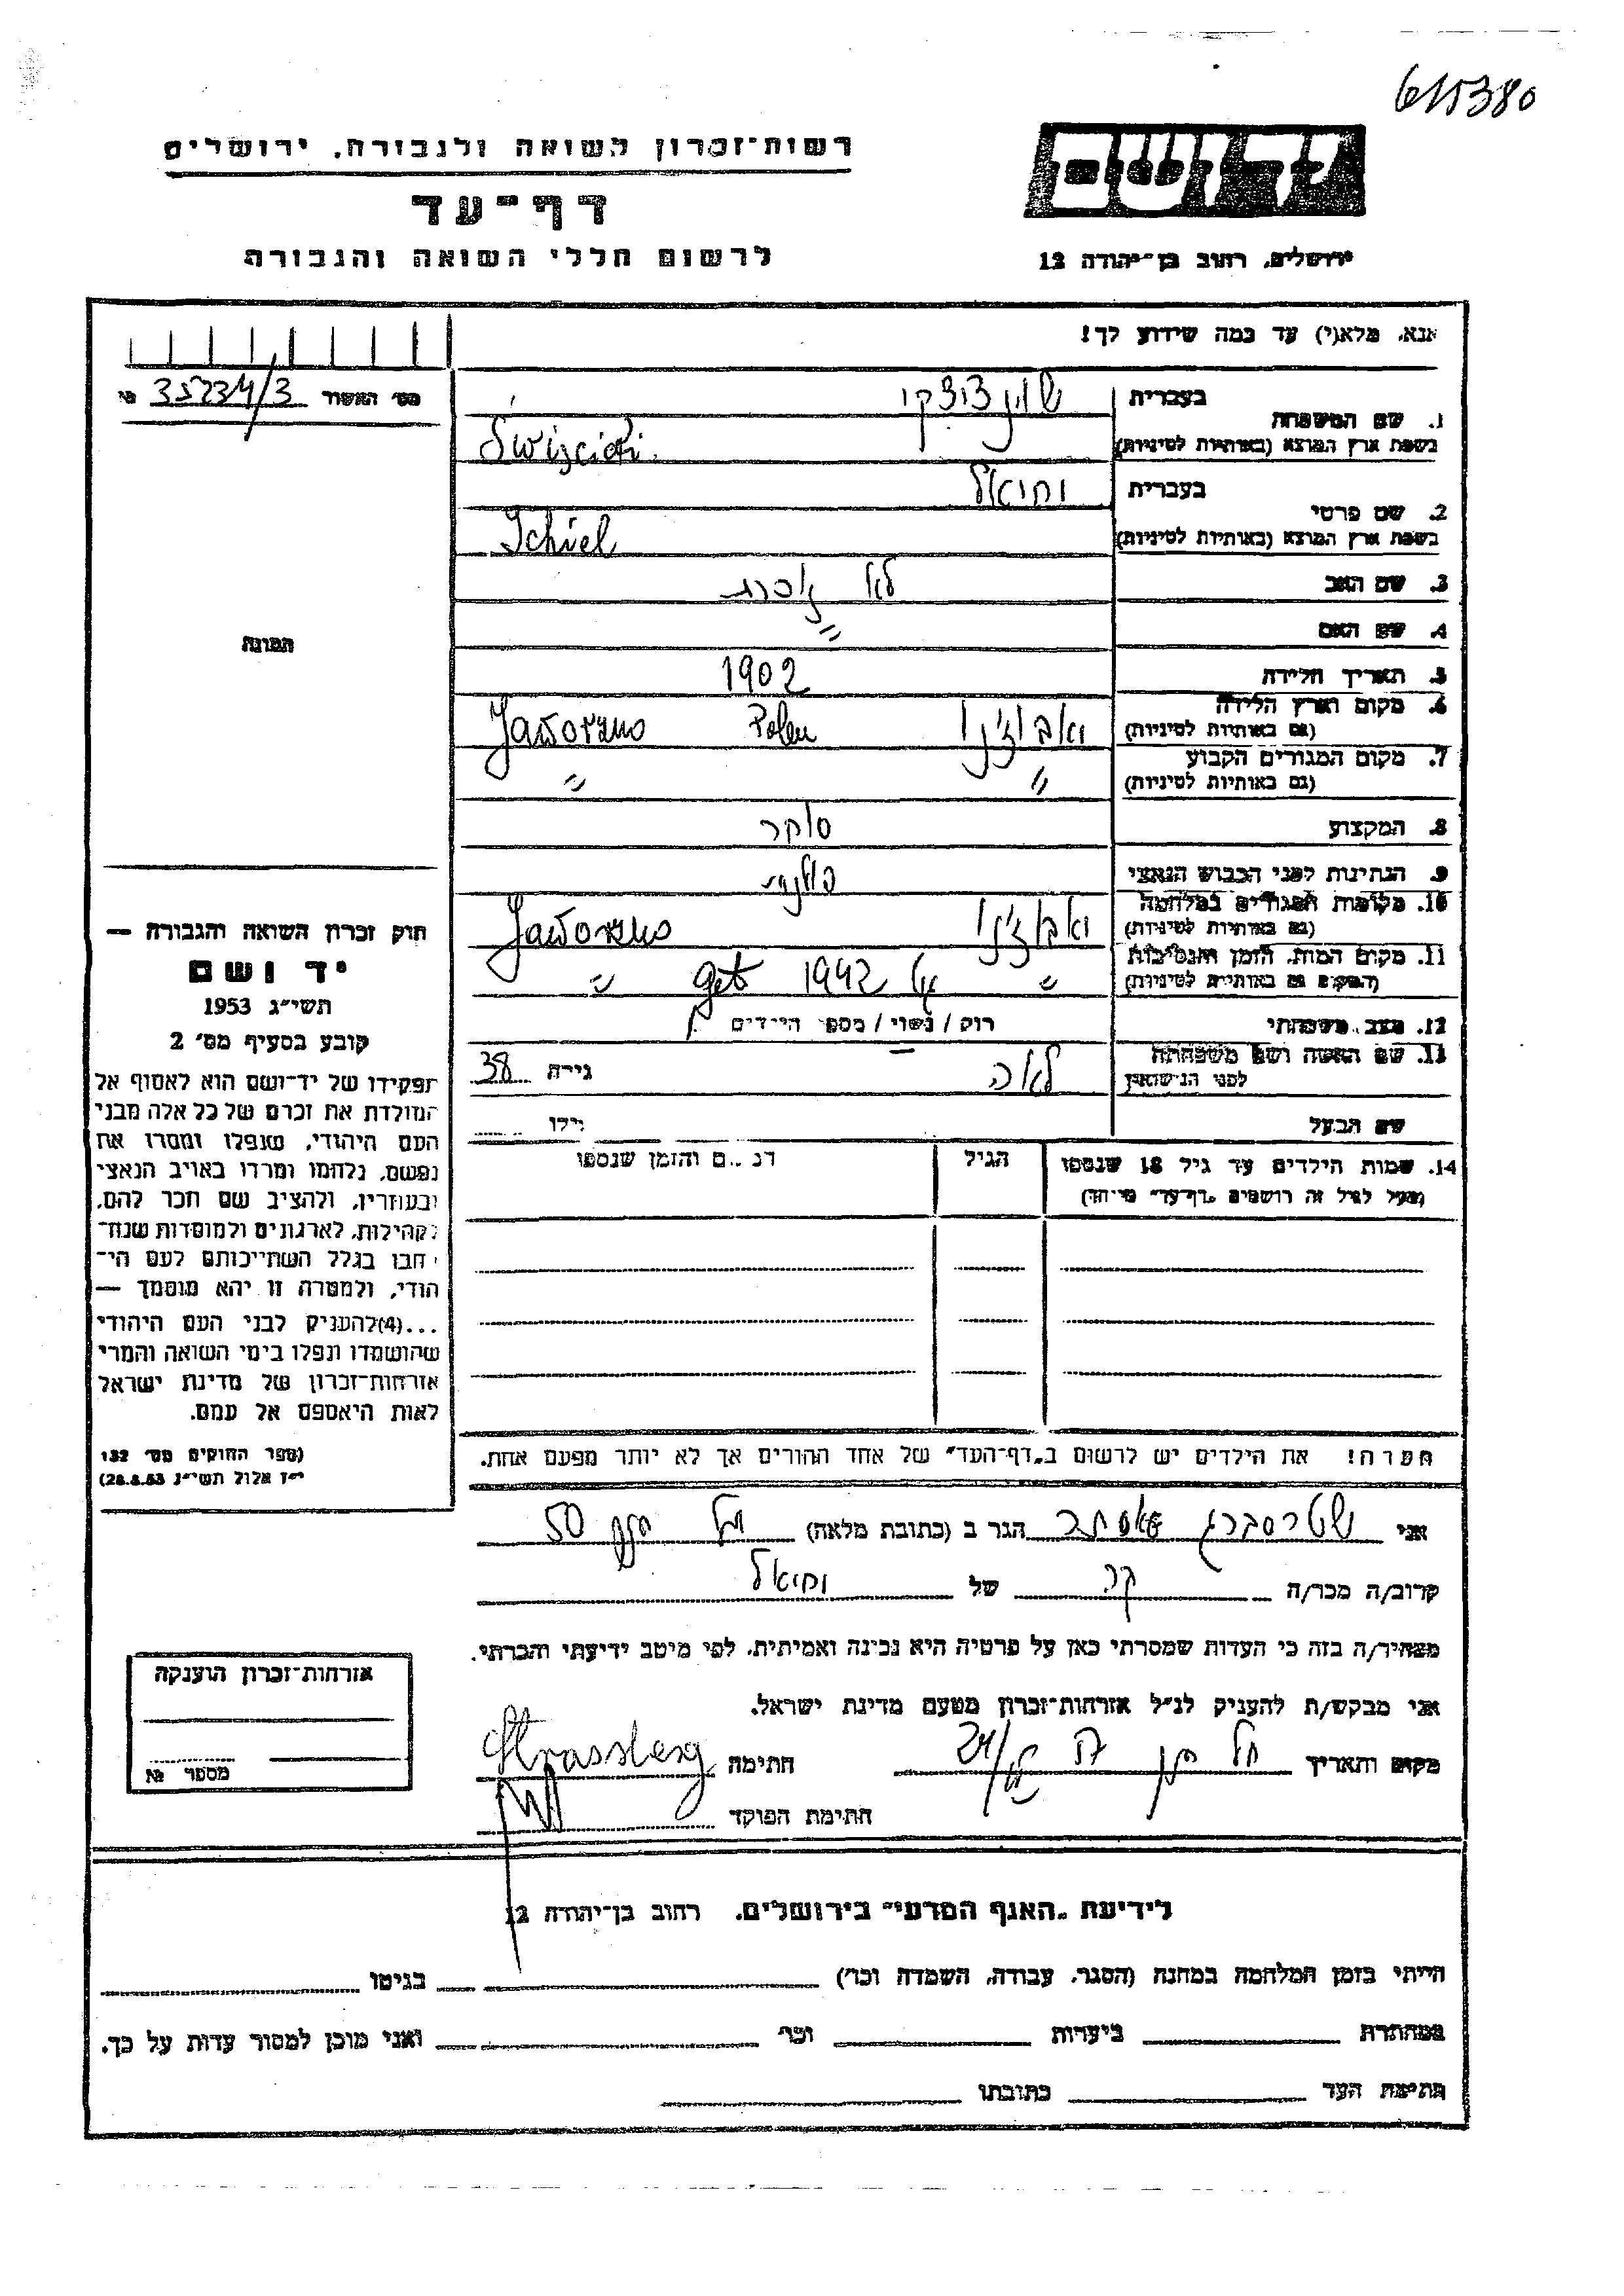 615380
רשות־זכרון לשואה ולגבורה, ירושלים
יד ושם
דף־עד
לרשום חללי השואה והגבורה
ירושלים, רחוב בן־יהודה 12
אנא, מלא(י) עד כמה שידוע לך!
מס׳ האשור 35234/3 №
1. שם המשפחה
בעברית
בשפת ארץ המוצא (באותיות לטיניות)
2. שם פרטי
בעברית יחיאל
בשפת ארץ המוצא (באותיות לטיניות) Ichiel
3. שם האב לא זכרת
4. שם האם ״
5. תאריך הלידה 1902
6. מקום וארץ הלידה
(גם באותיות לטיניות) Jaworzno Polen
7. מקום המגורים הקבוע
(גם באותיות לטיניות) ״ ״
8. המקצוע סוחר
9. הנתינות לפני הכבוש הנאצי פולנית
10. מקומות המגורים במלחמה
(גם באותיות לטיניות) Jaworzno
11. מקום המות, הזמן והנסיבות
(המקום גם באותיות לטיניות) ״ 1942 get ״
12. מצב משפחתי רוק / נשוי / מספר הילדים
13. שם האשה ושם משפחתה
לפני הנישואין לאה גילה 38
שם הבעל גילו
14. שמות הילדים עד גיל 18 שנספו
(מעל לגיל זה רושמים „דף־עד״ מיוחד)
הגיל
המקום והזמן שנספו
הערה! את הילדים יש לרשום ב„דף־העד״ של אחד ההורים אך לא יותר מפעם אחת.
התמונה
חוק זכרון השואה והגבורה —
יד ושם
תשי״ג 1953
קובע בסעיף מס׳ 2
תפקידו של יד־ושם הוא לאסוף אל
המולדת את זכרם של כל אלה מבני
העם היהודי, שנפלו ומסרו את
נפשם, נלחמו ומרדו באויב הנאצי
ובעוזריו, ולהציב שם וזכר להם,
לקהילות, לארגונים ולמוסדות שנח־
רבו בגלל השתייכותם לעם הי־
הודי, ולמטרה זו יהא מוסמך —
...(4)להעניק לבני העם היהודי
שהושמדו ונפלו בימי השואה והמרי
אזרחות־זכרון של מדינת ישראל
לאות היאספם אל עמם.
(ספר החוקים מס׳ 132
י״ז אלול תשי״ג 28.8.53)
אני שטרסברג אסתר הגר ב (כתובת מלאה) 50
קרוב/ה מכר/ה של יחיאל
מצהיר/ה בזה כי העדות שמסרתי כאן על פרטיה היא נכונה ואמיתית, לפי מיטב ידיעתי והכרתי.
אני מבקש/ת להעניק לנ״ל אזרחות־זכרון מטעם מדינת ישראל.
מקום ותאריך חתימה Strassberg
חתימת הפוקד
אזרחות־זכרון הוענקה
מספר №
לידיעת „האגף המדעי״ בירושלים, רחוב בן־יהודה 12
הייתי בזמן המלחמה במחנה (הסגר, עבודה, השמדה וכו׳) בגיטו
במחתרת ביערות וכו׳ ואני מוכן למסור עדות על כך.
חתימת העד כתובתו